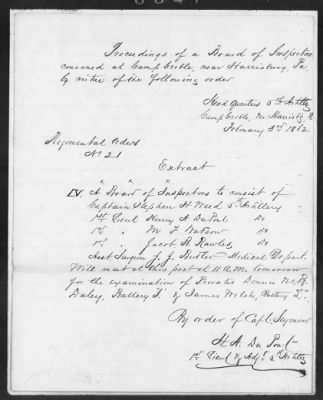 Proceedings of a Board of Inspectors
convened at Camp Greble, near Harrisburg, Pa
by virtue of the following order
Head Quarters 5th Artlly
Camp Greble, Nr Harrisbg, Pa
February 3rd 1862
Regimental Orders
No 21
Extract
IV. "A Board" of Inspectors to consist of
Captain Stephen H Weed 5th Artillery
1st Lieut Henry A Du Pont Do
1st " M F Watson Do
1st " Jacob B. Rawles Do
Asst Surgeon J. J. Medical Depart.
Will meet at this post at 11 A.M. tomorrow
for the examination of Private Dennis
Daley, Battery & James Welsh, Battery
By order of Capt. Seymour
H. A. Du Pont
1st Lieut & Adjt 5th Artlly